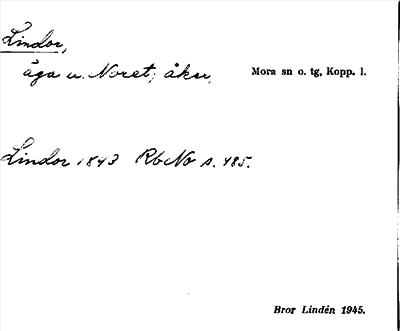 Lindor,
äga u. Noret; åker. Mora sn o. tg, Kopp. l.
Lindor 1843 RbNo s. 485.
Bror Lindén 1945.